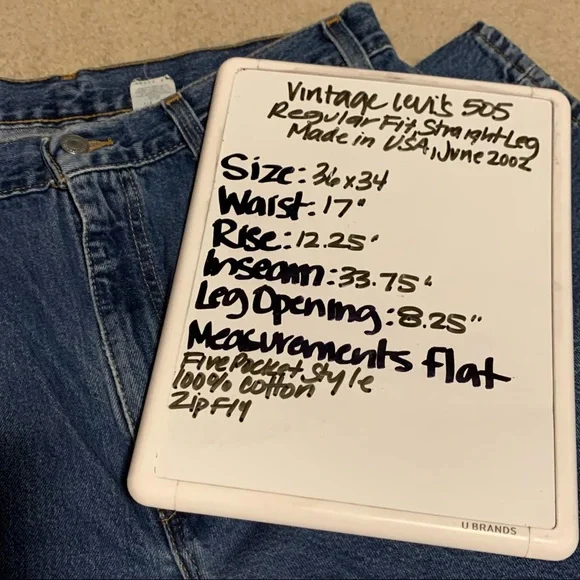 Vintage Levi's 505
Regular Fit, Straight Leg
Made in USA, June 2002
Size: 36x34
Waist: 17"
Rise: 12.25"
Inseam: 33.75"
Leg Opening: 8.25"
Measurements flat
Five Pocket Style
100% cotton
Zip Fly
U BRANDS